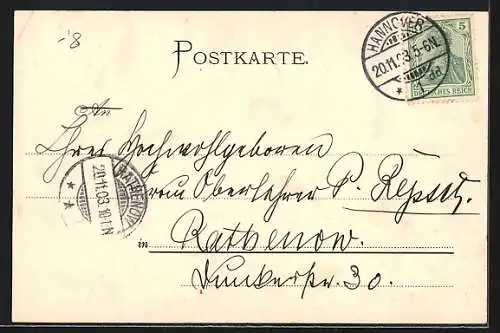 8
POSTKARTE.
HANNOVER
20.11.03.5-6N.
5
DEUTSCHES REICH
An
Ihrer Hochwohlgeboren
Frau Oberlehrer P.
RATHENOW
20.11.03.10-11N
in Rathenow.
30.